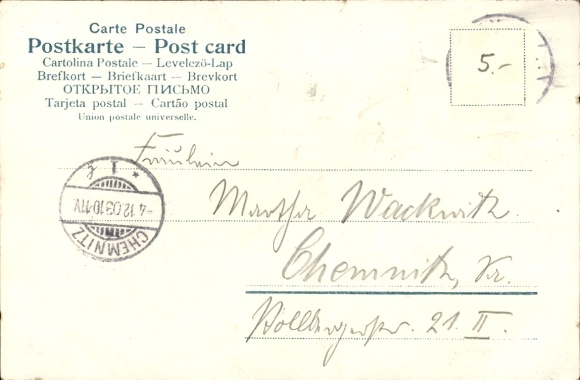 Carte Postale
Postkarte – Post card
Cartolina Postale – Levelező-Lap
Brefkort – Briefkaart – Brevkort
ОТКРЫТОЕ ПИСЬМО
Tarjeta postal – Cartão postal
Union postale universelle.
5.-
Fräulein
Martha Wackwitz.
Chemnitz,
21. II.
* 1
-4.12.03.10-11V.
CHEMNITZ